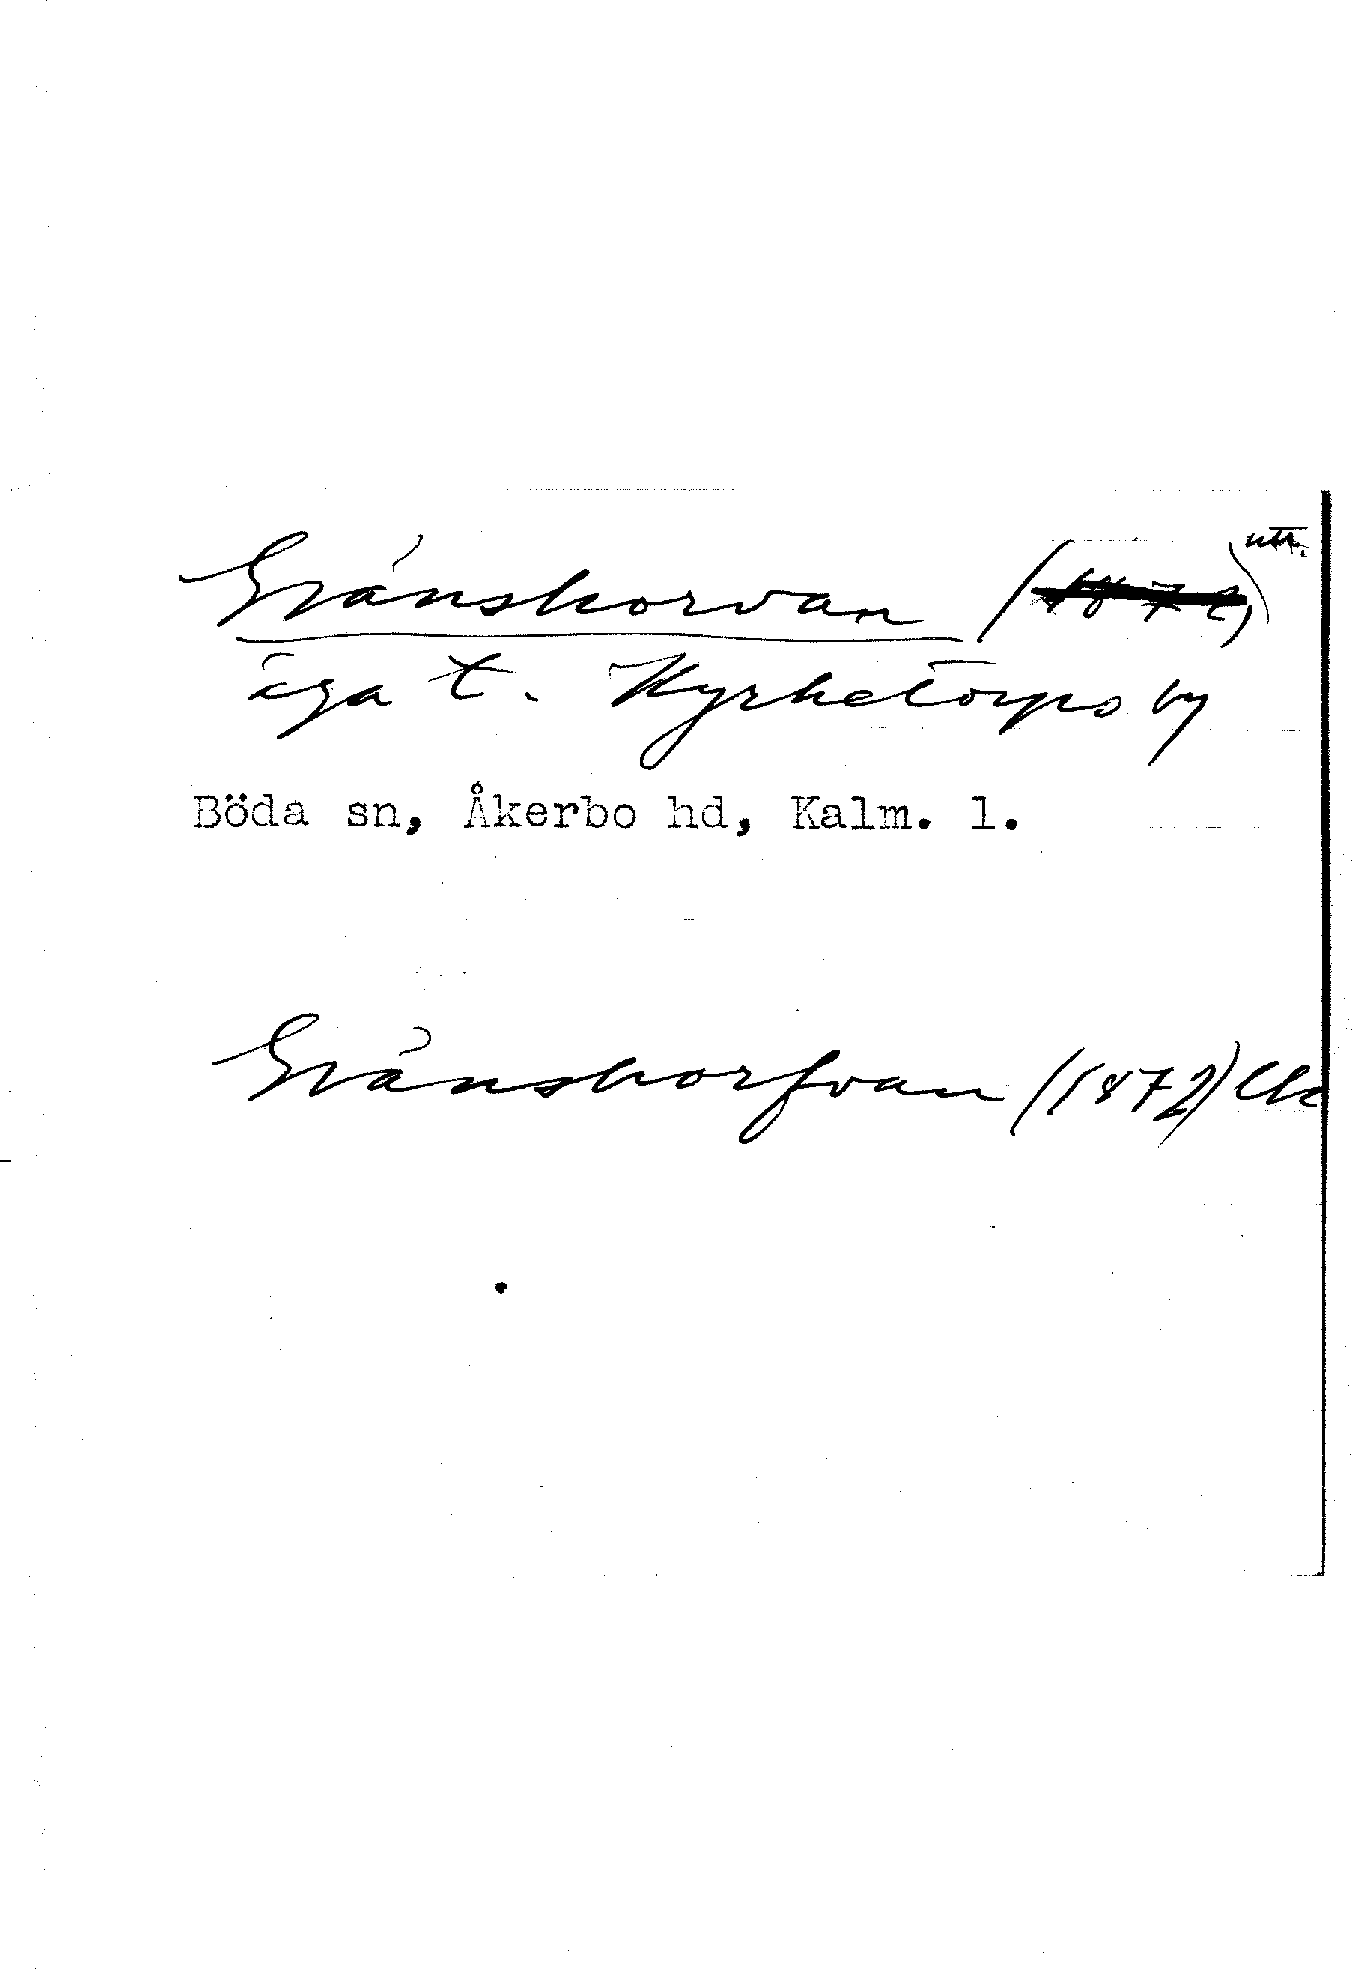 Gränskorvan (1872) utr.
äga t. Kyrketorps by
Böda sn, Åkerbo hd, Kalm. l.
Gränskorfvan (1872)